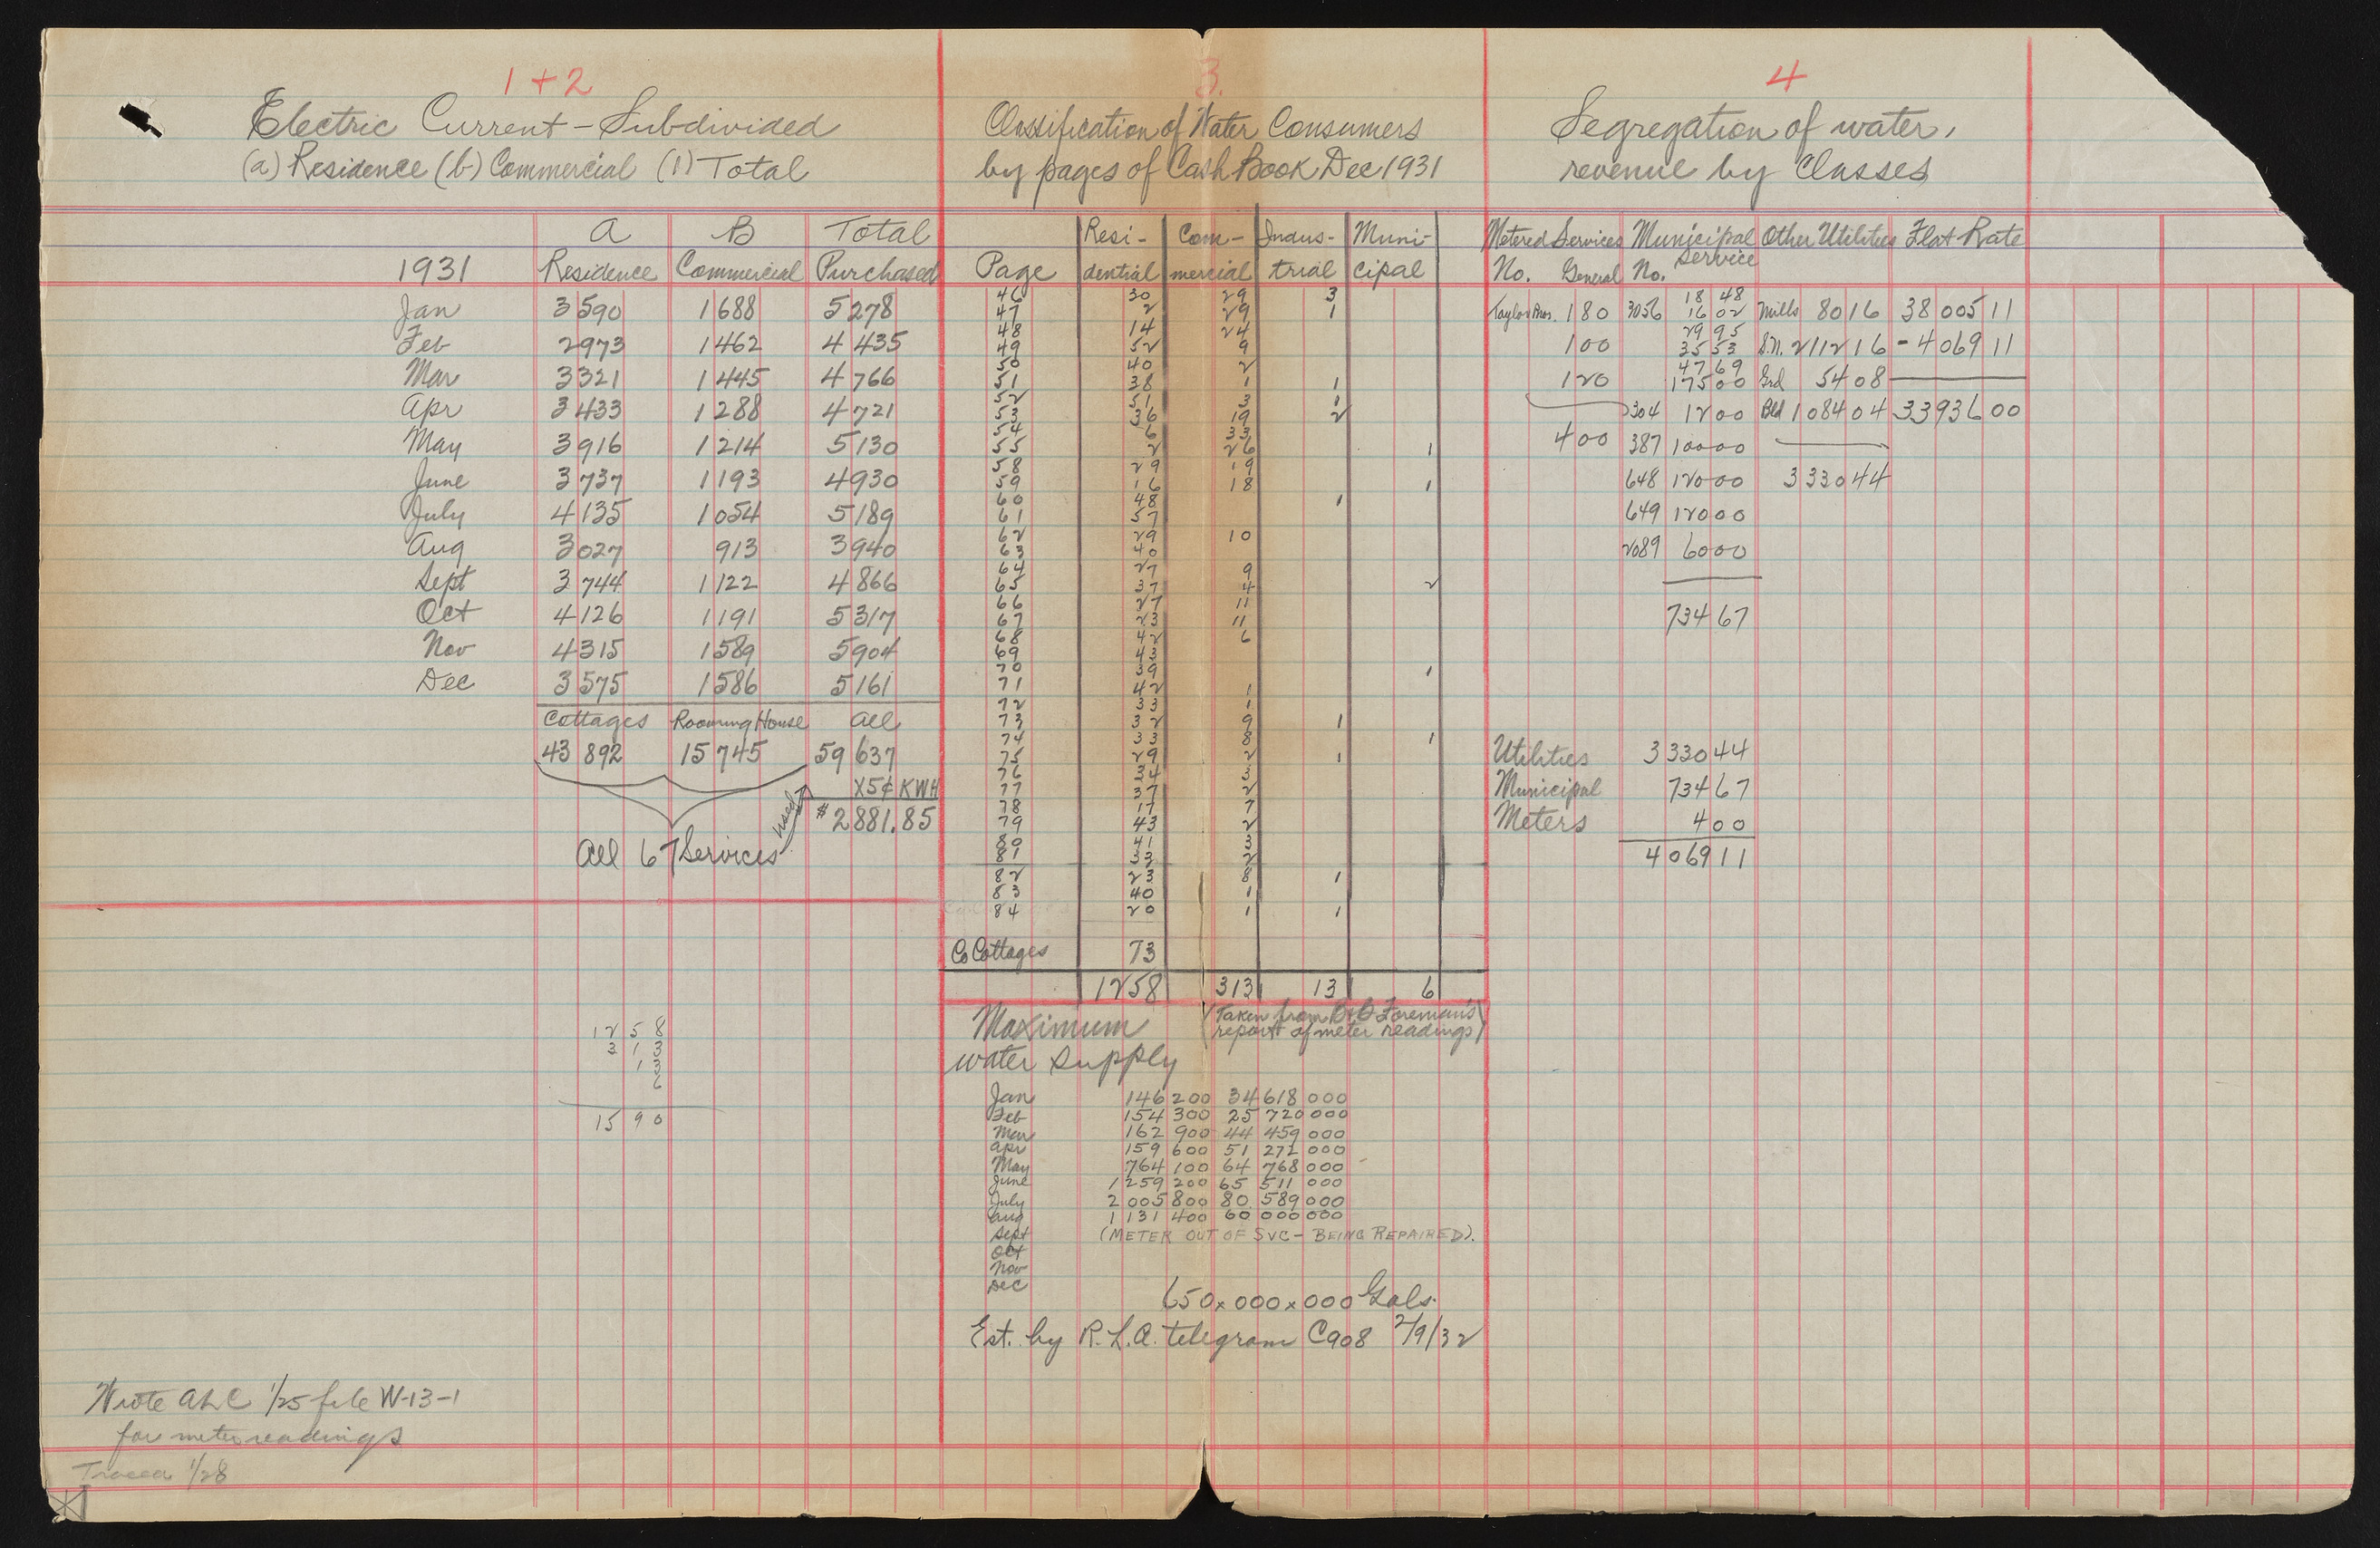 1 + 2
Electric Current - Subdivided
(a) Residence (b) Commercial (1) Total
A B Total
1931 Residence Commercial Purchased
Jan 3590 1688 5278
Feb 2973 1462 4435
Mar 3321 1445 4766
Apr 3433 1288 4721
May 3916 1214 5130
June 3737 1193 4930
July 4135 1054 5189
Aug 3027 913 3940
Sept 3744 1122 4866
Oct 4126 1191 5317
Nov 4315 1589 5904
Dec 3575 1586 5161
Cottages Rooming House all
43 892 15 745 59 637
X5¢ KWH
$2881.85
used
all 67 Services
1258
313
13
6
1590
Wrote ALC 1/25 file W-13-1
for meter readings
Traced 1/28
3.
Classification of Water Consumers
by pages of Cash Book Dec 1931
Page Resi-dential Com-mercial Indus-trial Muni-cipal
46 30 29 3
47 2 29 1
48 14 24
49 52 9
50 40 2
51 38 1 1
52 51 3 1
53 36 19 2
54 6 33
55 2 26 1
58 29 19
59 16 18 1
60 48 1
61 57
62 29 10
63 40
64 27 9
65 37 4 2
66 27 11
67 23 11
68 42 6
69 43
70 39 1
71 42 1
72 33 1
73 32 9 1
74 33 8 1
75 29 2 1
76 34 3
77 37 2
78 17 7
79 43 2
80 41 3
81 33 2
82 23 8 1
83 40 1
84 20 1 1
Co Cottages 73
1258 313 13 6
Maximum
water supply
(Taken from B&B Foreman's
report of meter readings)
Jan 146 200 34 618 000
Feb 154 300 25 720 000
Mar 162 900 44 459 000
Apr 159 600 51 272 000
May 764 100 64 768 000
June 1 259 200 65 511 000
July 2 005 800 80 589 000
Aug 1 131 400 60 000 000
Sept (METER OUT OF SVC - BEING REPAIRED).
Oct
Nov
Dec
650x000x000 Gals.
Est. by R.L.A. telegram C908 2/9/32
4
Segregation of water,
revenue by Classes
Metered Services Municipal Service Other Utilities Flat Rate
No. General No.
18 48
Taylor Bros. 180 3056 16 02 Mills 8016 3800511
29 95
100 35 53 S.N. 211216 - 406911
47 69
120 175 00 Grd 5408
304 1200 Bld 108404 3393600
400 387 10000
648 12000 333044
649 12000
2089 6000
73467
Utilities 333044
Municipal 73467
Meters 400
406911